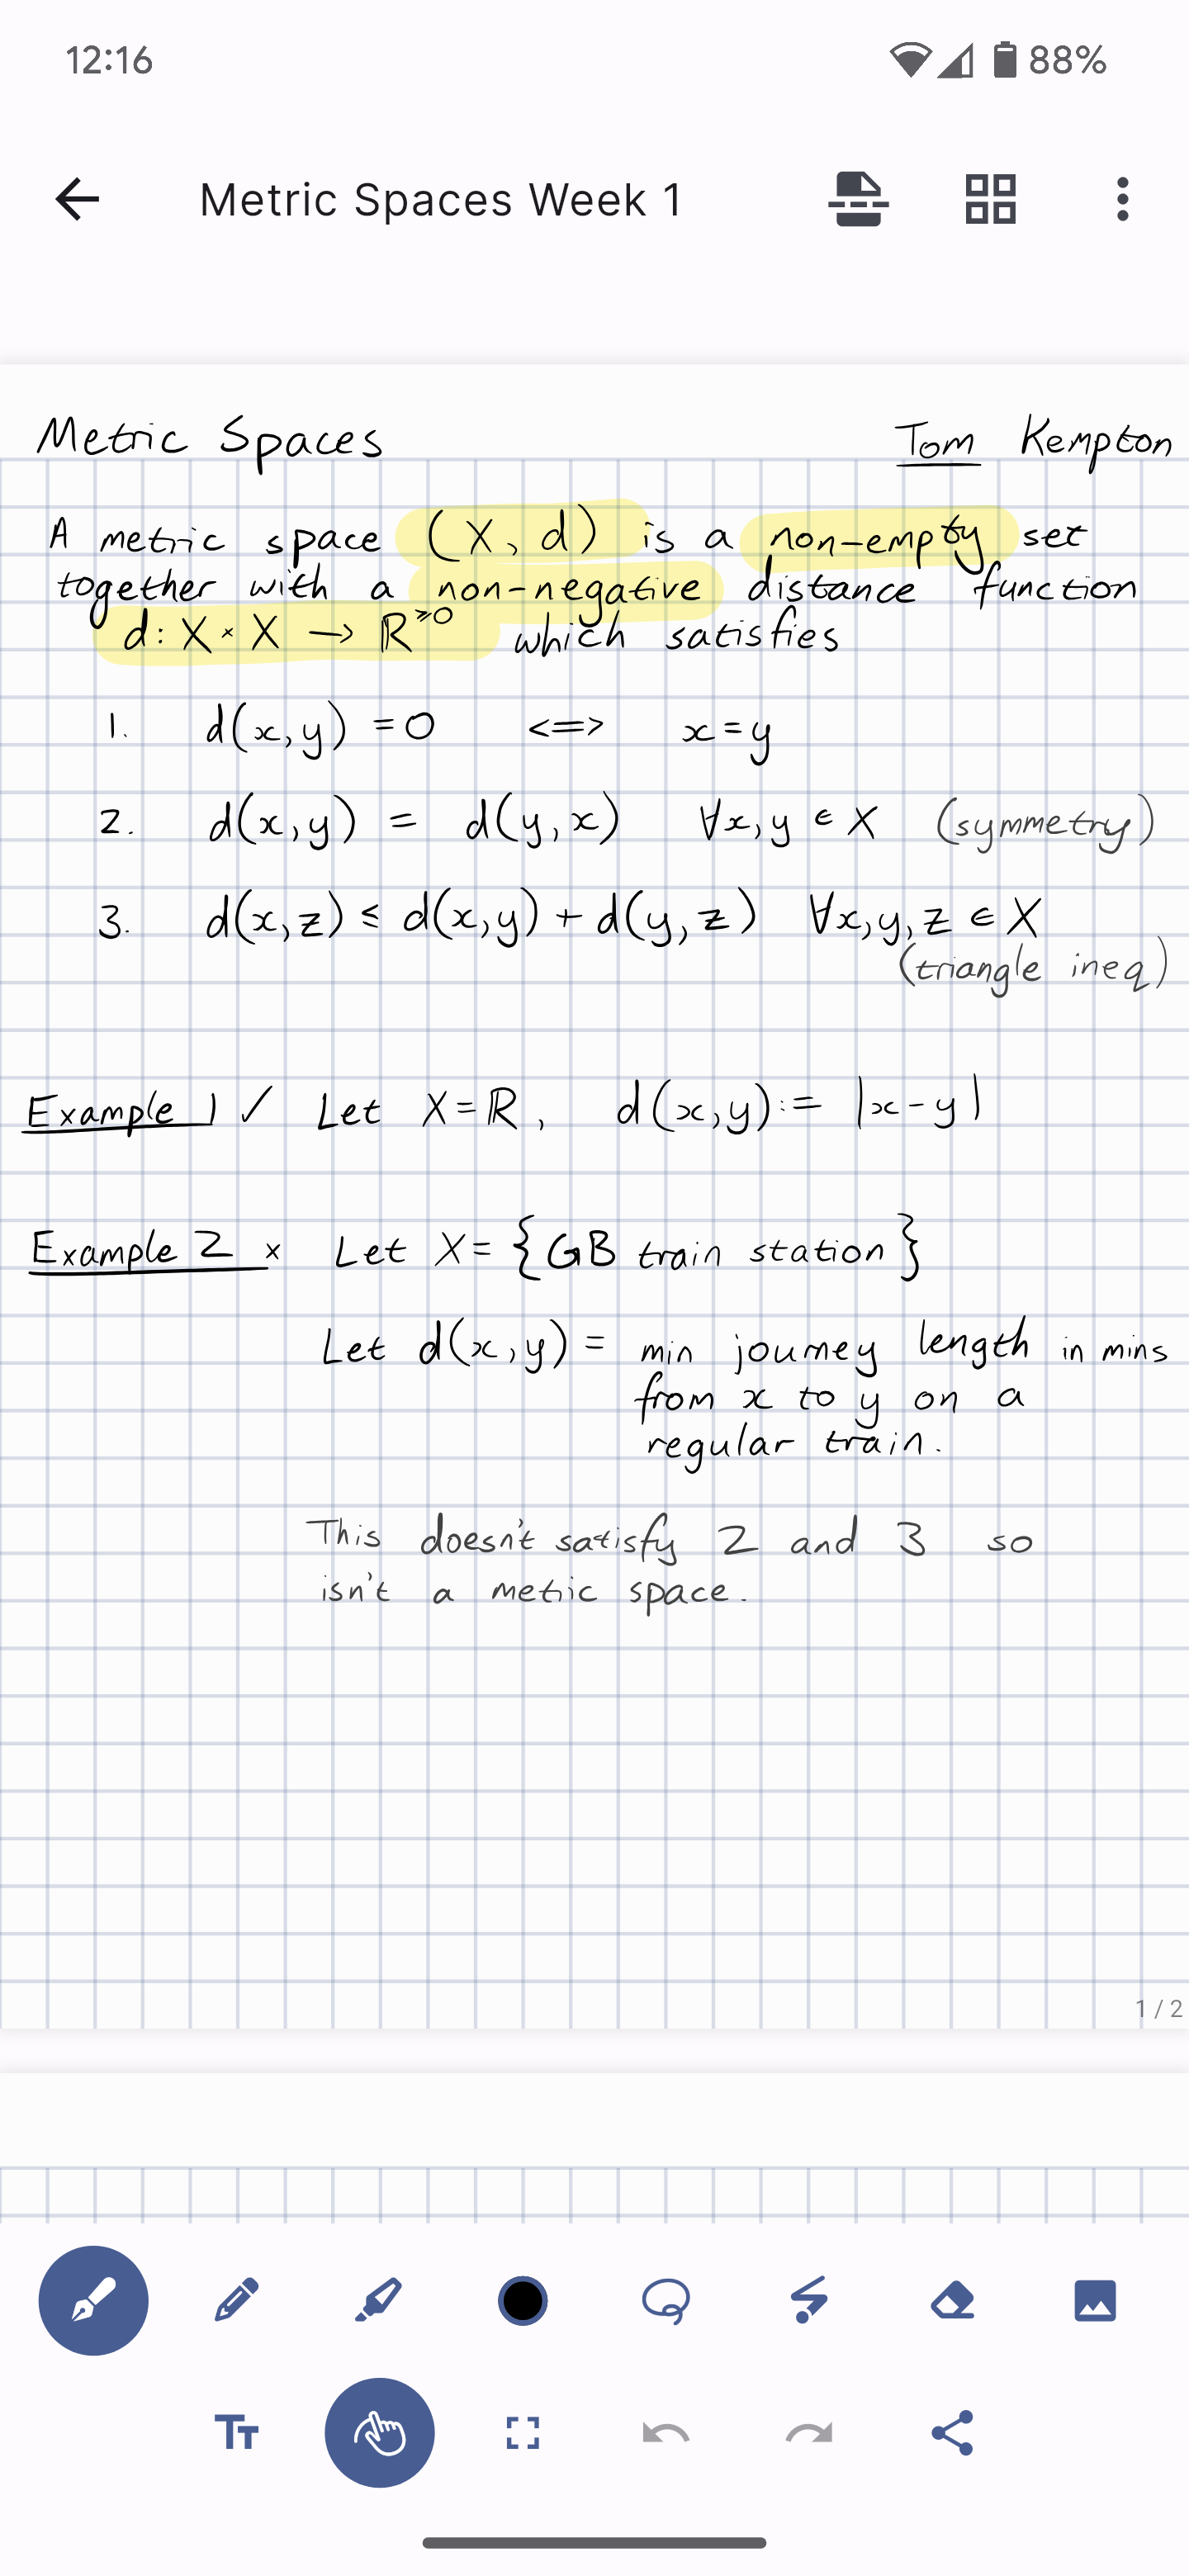 12:16 88%
Metric Spaces Week 1
Metric Spaces Tom Kempton
A metric space (X, d) is a non-empty set
together with a non-negative distance function
d: X × X → ℝ^≥0 which satisfies
1. d(x,y) = 0 <=> x=y
2. d(x,y) = d(y,x) ∀x,y ∈ X (symmetry)
3. d(x,z) ≤ d(x,y) + d(y,z) ∀x,y,z ∈ X
(triangle ineq)
Example 1 ✓ Let X=ℝ, d(x,y) := |x-y|
Example 2 × Let X= {GB train station}
Let d(x,y) = min journey length in mins
from x to y on a
regular train.
This doesn't satisfy 2 and 3 so
isn't a metic space.
1 / 2
TT